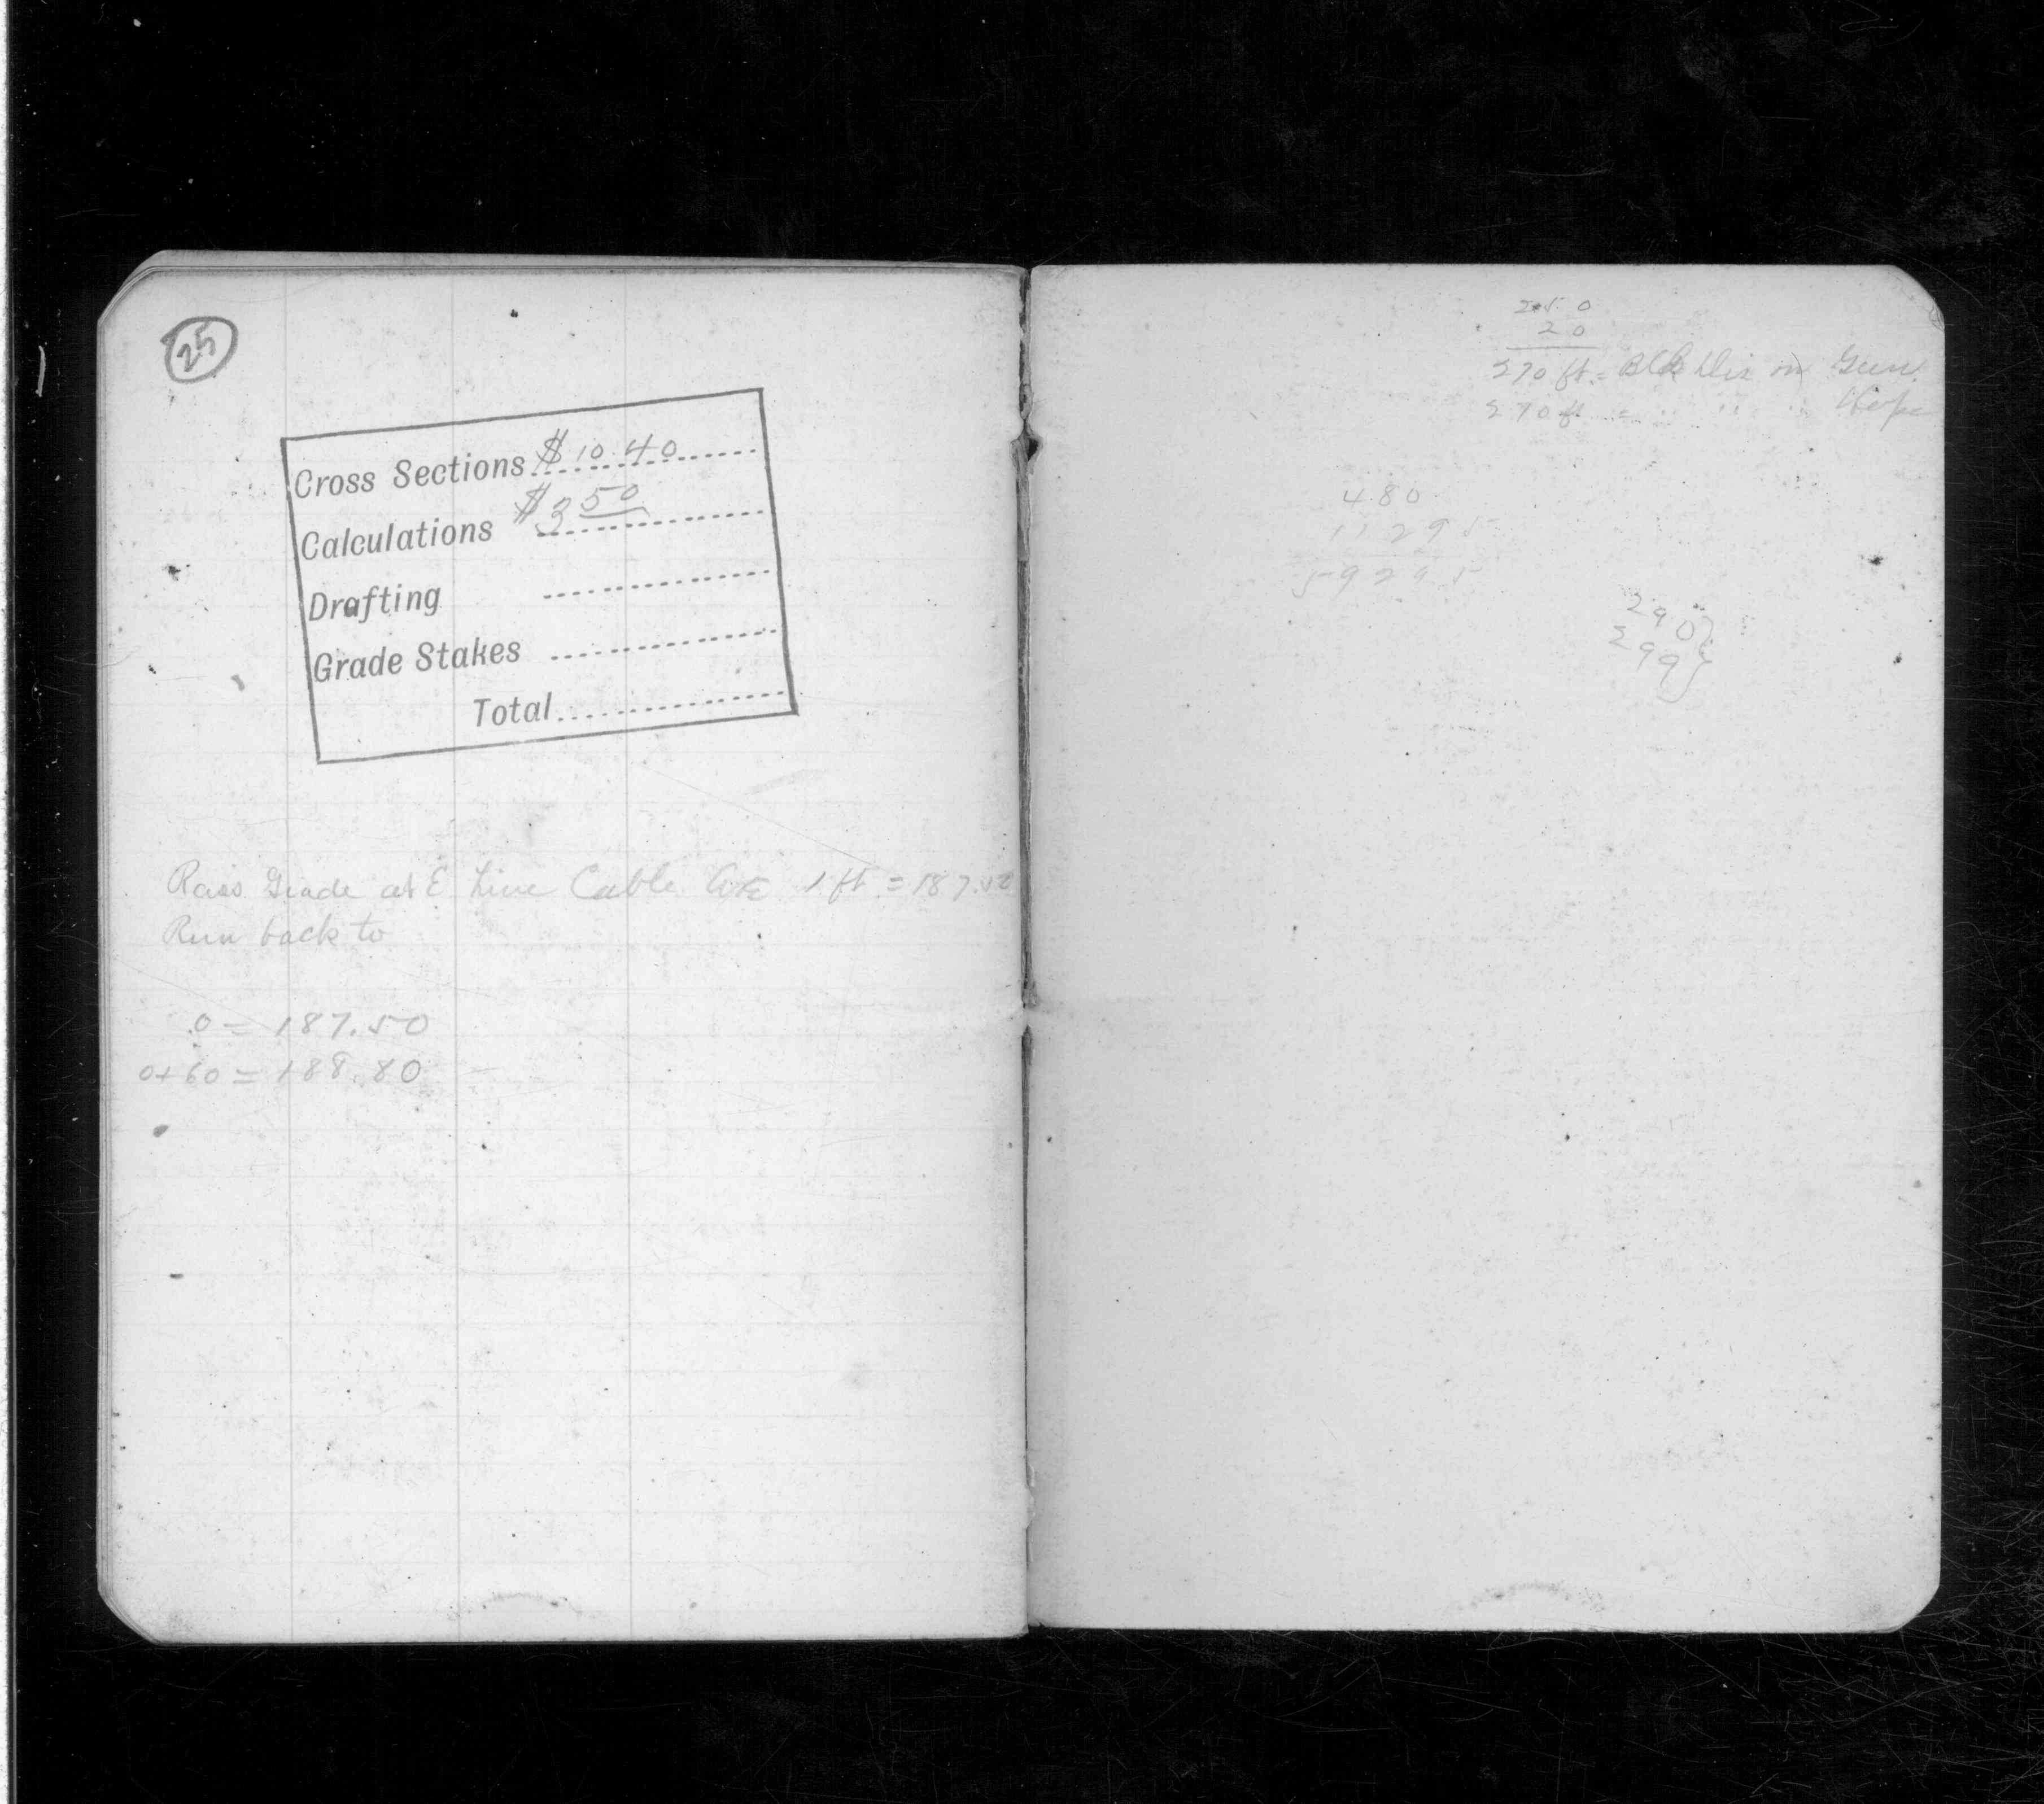 25
Cross Sections $10.40
Calculations $3 50
Drafting
Grade Stakes
Total
Rais Grade at E Line Cable Ave 1 ft = 187.50
Run back to
0 = 187.50
0+60 = 188.80
250
20
270 ft = Blk Dis on
270 ft = " " "
480
11295
59295
290
299